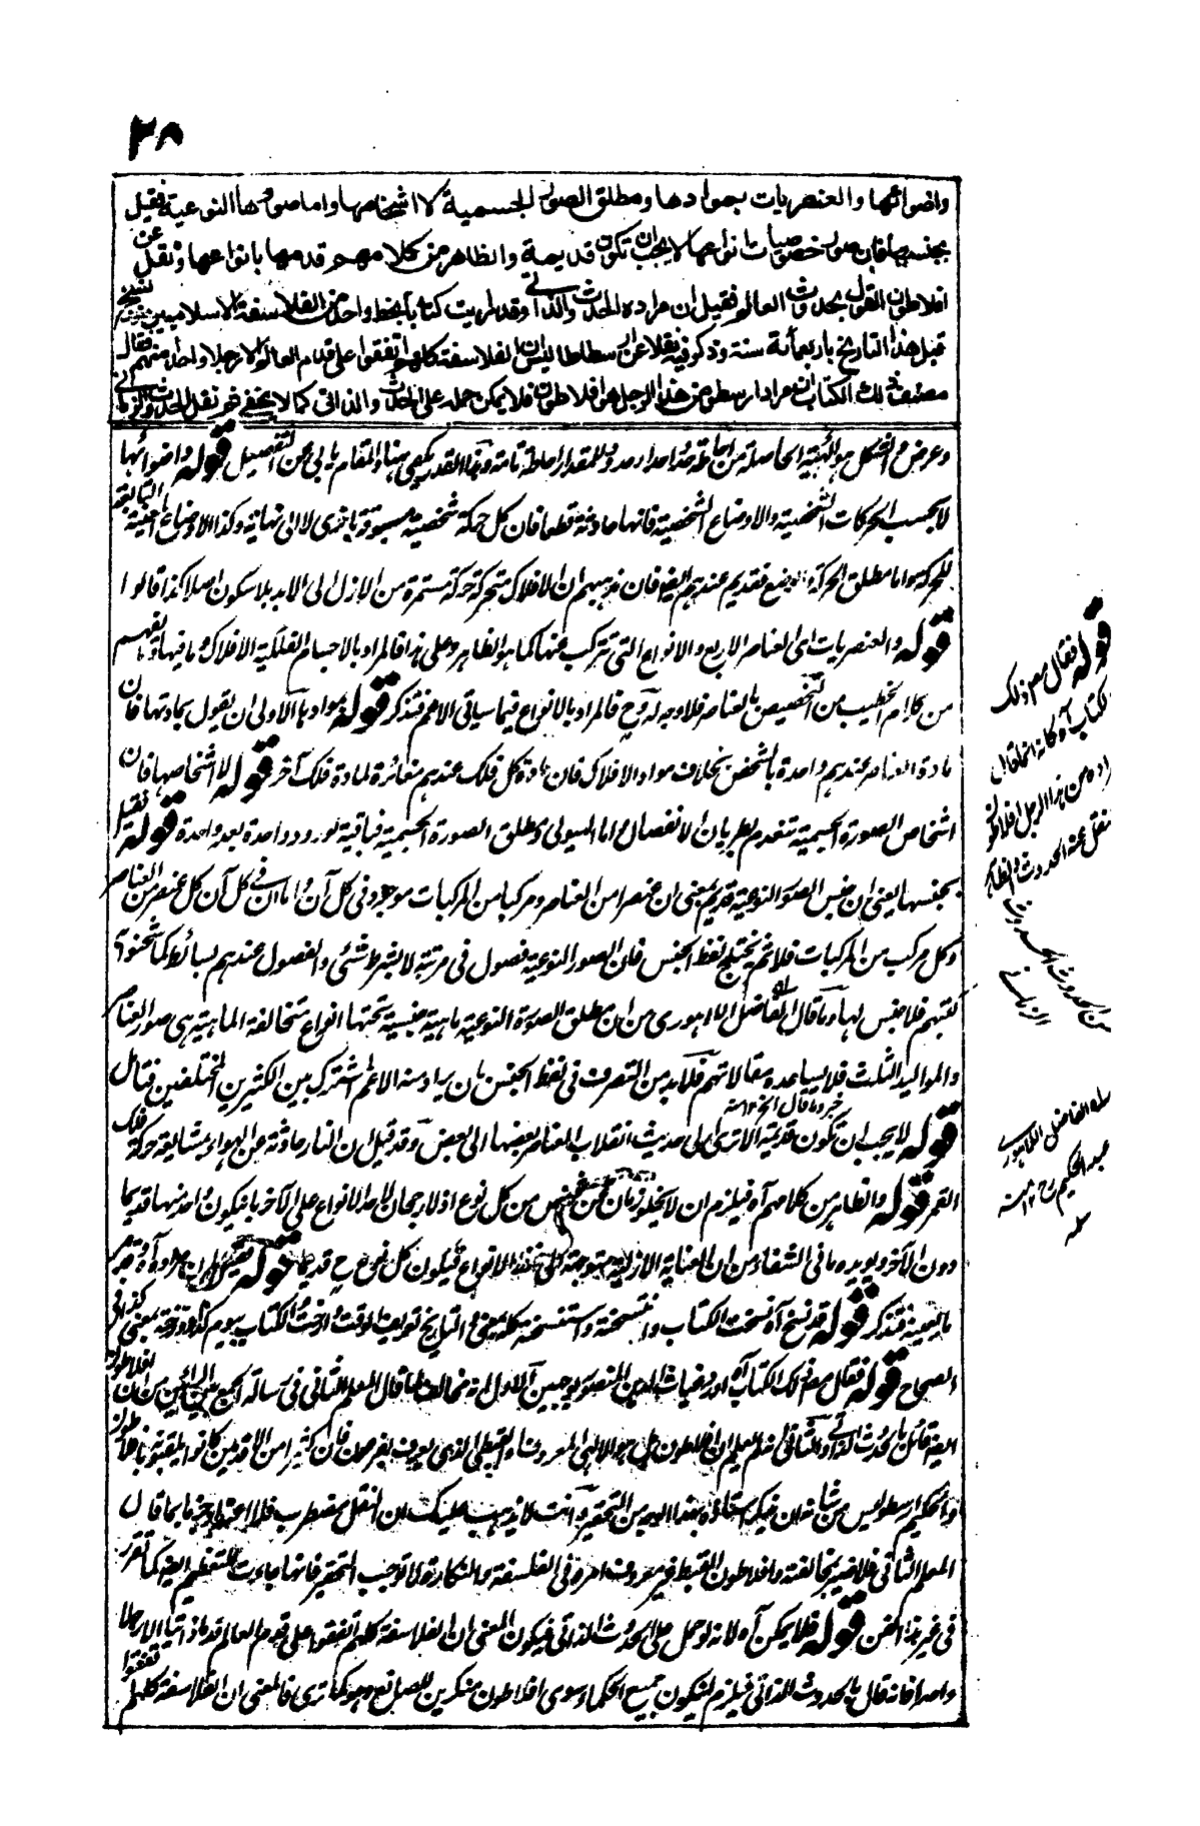 ٢٨
واضوائها والعنصريات بموادها ومطلق الصور الجسمية لا اشخاصها واما صورها النوعية فقيل
بجنسها فان صور خصوصيات انواعها لا يجب ان تكون قديمة والظاهر من كلامهم قدمها بانواعها ونقل عن
افلاطون القول بحدوث العالم فقيل ان مراده الحدوث الذاتي وقد رايت كتابا بخط واحد من الفلاسفة الاسلاميين نسخ
قبل هذا التاريخ باربعمأة سنة وذكر فيه نقلا عن ارسطاطاليس ان الفلاسفة كلهم اتفقوا على قدم العالم الا رجلا واحدا منهم فقال
مصنف ذلك الكتاب ان مراد ارسطو من هذا الرجل هو افلاطون فلا يمكن حمله على الحدوث الذاتي كما لا يخفى فنقل الحدوث الزماني
وعرض والشكل هو الهيئة الحاصلة من احاطة حد او حدود للمقدار احاطة تامة وهذا القدر يكفي ههنا والمقام يابى عن التفصيل قوله واضوائها
لا بحسب الحركات الشخصية والاوضاع الشخصية فانها حادثة قطعا فان كل حركة شخصية مسبوقة باخرى لا الى نهاية وكذا الاوضاع المعينة التابعة
للحركة واما مطلق الحركة والوضع فقديم عندهم ايضا فان مذهبهم ان الافلاك متحركة حركة مستمرة من الازل الى الابد بلا سكون اصلا كذا قالوا
قوله والعنصريات اى العناصر الاربع والانواع التى تتركب منها كما هو الظاهر وعلى هذا فالمراد بالاجسام الفلكية الافلاك وما فيها وما يفهم
من كلام الخطيب من التخصيص بالعناصر فلا وجه له وح فالمراد بالانواع فيما سياتى الاعم فتذكر قوله بموادها الاولى ان يقول بمادتها فان
مادة العناصر عندهم واحدة بالشخص بخلاف مواد الافلاك فان مادة كل فلك عندهم مغائرة لمادة فلك آخر قوله لا اشخاصها فان
اشخاص الصورة الجسمية تنعدم بطريان الانفصال واما الهيولى ومطلق الصورة الجسمية فباقية لورود واحدة بعد واحدة قوله فقيل
بجنسها يعنى ان جنس الصور النوعية قديم بمعنى ان عنصرا من العناصر ومركبا من المركبات موجود فى كل آن واما ان فى كل آن كل عنصر من العناصر
وكل مركب من المركبات فلا ثم يختلج لفظ الجنس فان الصور النوعية فصول فى مرتبة لا بشرط شئ والفصول عندهم بسائط كما شحنوا به
كتبهم فلا جنس لها وما قال الفاضل اللاهورى من ان مطلق الصورة النوعية ماهية جنسية تحتها انواع متخالفة الماهية هى صور العناصر
والمواليد الثلث فلا يساعده مقالاتهم فلا بد من التصرف فى لفظ الجنس بان يراد منه الاعم المشترك بين الكثيرين المختلفين فتامل
خبر وما قال الخ ١٢ منه
قوله لا يجب ان تكون قديمة الا ترى الى حديث انقلاب العناصر بعضها الى بعض وقد قيل ان النار حادثة عن الهواء بمشايعة حركة فلك
القمر قوله والظاهر من كلامهم آه فيلزم ان لا يخلو زمان عن شخص من كل نوع اذ لا رجحان لاحد الانواع على الآخر بان يكون واحد منها قديما
دون الآخر ويؤيده ما فى الشفاء من ان العناية الازلية متوجهة الى حفظ الانواع فيكون كل نوع ح قديما قوله فقيل ان مراده آه
بالمعية فتذكر قوله قد نسخ آه نسخت الكتاب وانتسخته واستنسخته كله بمعنى والتاريخ تعريف الوقت وارخت الكتاب بيوم كذا وورخته بمعنى كذا فى
الصحاح قوله فقال مصنف ذلك الكتاب آه اورد غياث الدين المنصور بوجهين الاول انه مخالف لما قال المعلم الثانى فى رسالة الجمع بين الرائين من ان افلاطون
ايضا قائل بالحدوث الذاتى والثانى انه لم يعلم ان افلاطون هل هو الالهى المعروف او القبطى الذى يعرف بفرعون فان كثيرا من الاقدمين كانوا يلقبونه بافلاطون
والحكيم ارسطوليس من شانه ان يذكر استاذه بهذا الوجه من التحقير وانت لا يذهب عليك ان النقل مضطرب فلا اعتداد جزما بما قال
المعلم الثانى فلا ضير بمخالفته وافلاطون القبطى غير معروف امره فى الفلسفة والنكارة لا توجب التحقير فانها جاءت للتعظيم ايضا كما تقرر
فى غير هذا الفن قوله فلا يمكن آه لانه لو حمل على الحدوث الذاتى فيكون المعنى ان الفلاسفة كلهم اتفقوا على قدم العالم قدما ذاتيا الا رجلا
واحدا فانه قال بالحدوث الذاتى فيلزم ان يكون جميع الحكماء سوى افلاطون منكرين للصانع وهو كما ترى فالمعنى ان الفلاسفة كلهم اتفقوا
قوله فقال مص ذلك
الكتاب آه كانه اخلقال
راده من هذا الرجل افلاطون
نقل عنه الحدوث فالظاهر
من الحدوث الحدوث
الزمانى
سله الفاضل اللاهورى
عبد الحكيم رح ١٢ منه
سلمه